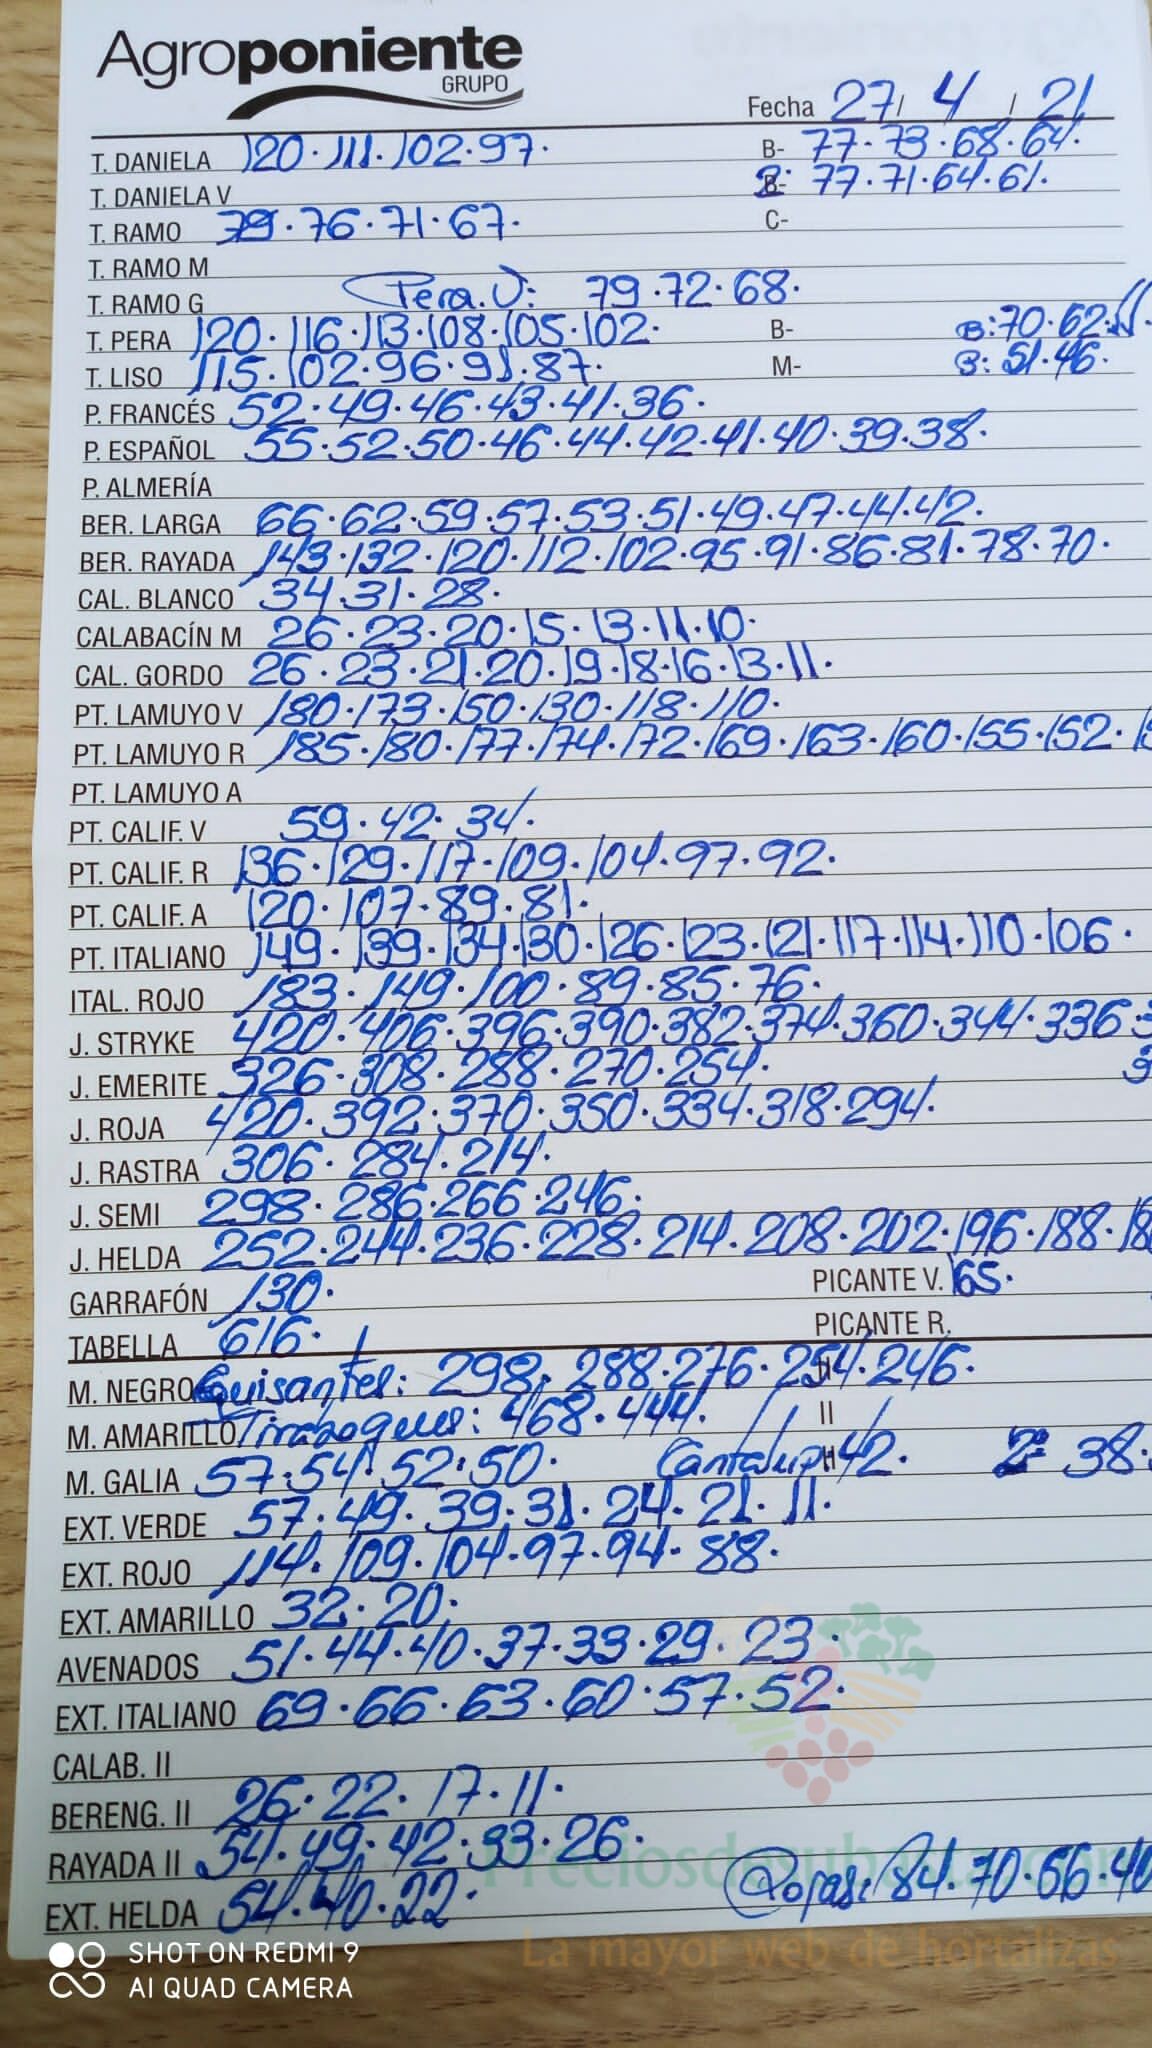 Agroponiente
GRUPO
Fecha 27/ 4 / 21
T. DANIELA 120·111·102·97· B- 77·73·68·64·
T. DANIELA V B- 77·71·64·61·
T. RAMO 79·76·71·67· C-
T. RAMO M
T. RAMO G Pera.V: 79·72·68·
T. PERA 120·116·113·108·105·102· B- B:70·62·
T. LISO 115·102·96·91·87· M- B: 51·46·
P. FRANCÉS 52·49·46·43·41·36·
P. ESPAÑOL 55·52·50·46·44·42·41·40·39·38·
P. ALMERÍA
BER. LARGA 66·62·59·57·53·51·49·47·44·42·
BER. RAYADA 143·132·120·112·102·95·91·86·81·78·70·
CAL. BLANCO 34·31·28·
CALABACÍN M 26·23·20·15·13·11·10·
CAL. GORDO 26·23·21·20·19·18·16·13·11·
PT. LAMUYO V 180·173·150·130·118·110·
PT. LAMUYO R 185·180·177·174·172·169·163·160·155·152·
PT. LAMUYO A
PT. CALIF. V 59·42·34·
PT. CALIF. R 136·129·117·109·104·97·92·
PT. CALIF. A 120·107·89·81·
PT. ITALIANO 149·139·134·130·126·123·121·117·114·110·106·
ITAL. ROJO 183·149·100·89·85·76·
J. STRYKE 420·406·396·390·382·374·360·344·336·
J. EMERITE 326·308·288·270·254·
J. ROJA 420·392·370·350·334·318·294·
J. RASTRA 306·284·214·
J. SEMI 298·286·266·246·
J. HELDA 252·244·236·228·214·208·202·196·188·
GARRAFÓN 130· PICANTE V. 165·
TABELLA 616· PICANTE R.
M. NEGRO Guisantes: 298·288·276·254·246· II
M. AMARILLO Tirabeques: 468·444· II
M. GALIA 57·54·52·50· Cantalup H 42· 2ª 38·
EXT. VERDE 57·49·39·31·24·21·11·
EXT. ROJO 114·109·104·97·94·88·
EXT. AMARILLO 32·20·
AVENADOS 51·44·40·37·33·29·23·
EXT. ITALIANO 69·66·63·60·57·52·
CALAB. II
BERENG. II 26·22·17·11·
RAYADA II 54·49·42·33·26·
Preciosdesubasta.com
EXT. HELDA 54·40·22· Rojas: 84·70·56·40
La mayor web de hortalizas
SHOT ON REDMI 9
AI QUAD CAMERA